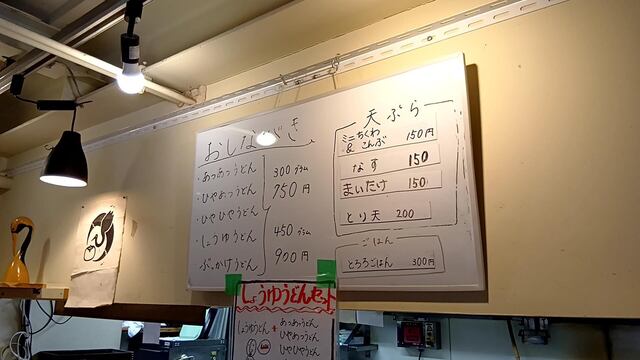 おしながき
・あつあつうどん
・ひやあつうどん
・ひやひやうどん
・しょうゆうどん
・ぶっかけうどん
300グラム
750円
450グラム
900円
天ぷら
ミニちくわ
& こんぶ 150円
なす 150
まいたけ 150
とり天 200
ごはん
とろろごはん 300円
しょうゆうどんセット
しょうゆうどん + あつあつうどん
ひやあつうどん
ひやひやうどん